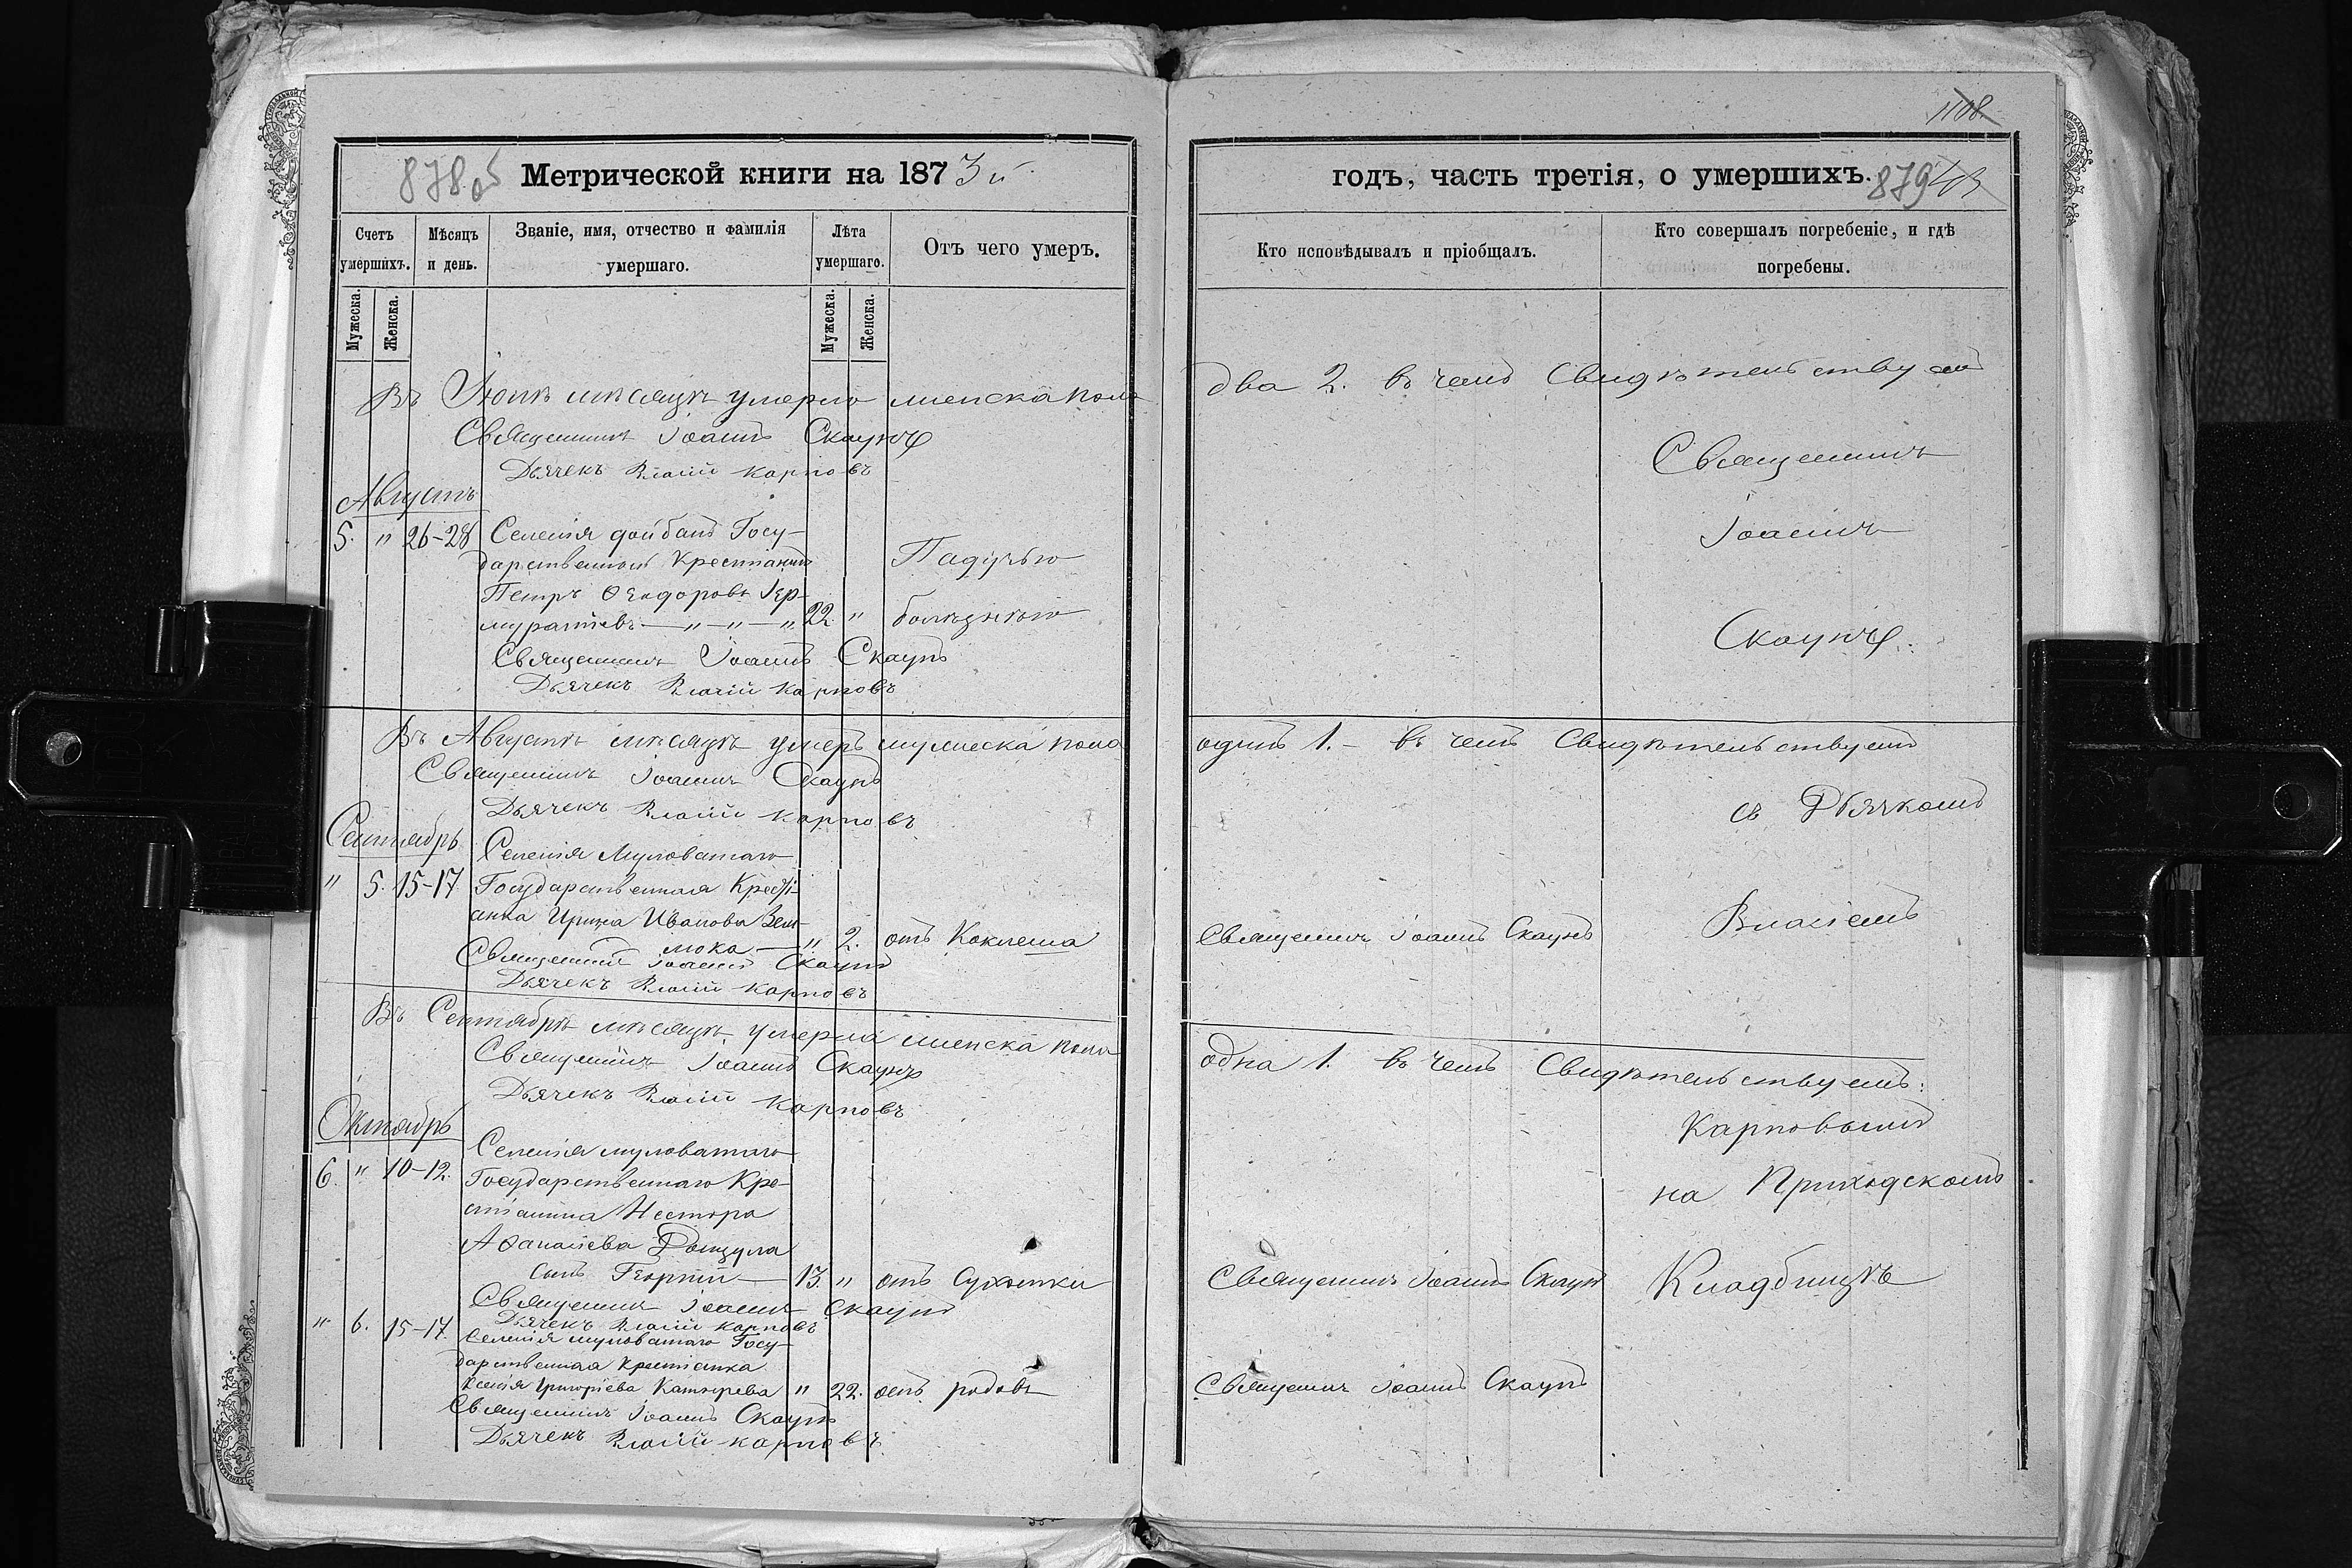 878об Метрической книги на 1873й
Счетъ умершихъ.
Мѣсяцъ и день.
Званіе, имя, отчество и фамилія умершаго.
Лѣта умершаго.
Отъ чего умеръ.
Мужеска.
Женска.
Мужеска.
Женска.
Въ Іюлѣ мѣсяцѣ умерло женска пола
Священникъ Іоаннъ Скаунъ
Дьячекъ Власій Карповъ
Августъ
5. " 26-28 Селенія Дойбанъ Госу-
дарственный Крестіанинъ Падучею
Петръ Ѳеодоровъ
22. " болѣзнѣю
Священникъ Іоаннъ Скаунъ
Дьячекъ Власій Карповъ
Въ Августѣ мѣсяцѣ умеръ мужеска пола
Священникъ Іоаннъ Скаунъ
Дьячекъ Власій Карповъ
Сентябрь
Селенія Муловатаго
" 5. 15-17. Государственная Кресті-
анка Ирина Иванова
" 2. отъ Коклюша
Священникъ Іоаннъ Скаунъ
Дьячекъ Власій Карповъ
Въ Сентябрѣ мѣсяцѣ умерла женска пола
Священникъ Іоаннъ Скаунъ
Дьячекъ Власій Карповъ
Октябрь
Селенія Муловатаго
6. " 10-12. Государственнаго Кре-
стіанина Нестора
Аѳанасіева
сынъ Георгій 13. " отъ Сухотки
Священникъ Іоаннъ Скаунъ
Дьячекъ Власій Карповъ
" 6. 15-17. Селенія Муловатаго Госу-
дарственная Крестіанка
Ксенія Григоріева " 22. отъ родовъ
Священникъ Іоаннъ Скаунъ
Дьячекъ Власій Карповъ
1108.
годъ, часть третія, о умершихъ. 879
Кто исповѣдывалъ и пріобщалъ.
Кто совершалъ погребеніе, и гдѣ погребены.
два 2. въ чемъ Свидѣтельствуемъ
Священникъ
Іоаннъ
Скаунъ
одинъ 1. – въ чемъ Свидѣтельствуемъ
съ Дьячкомъ
Власіемъ
Священникъ Іоаннъ Скаунъ
одна 1. въ чемъ Свидѣтельствуемъ:
Карповымъ
на Приходскомъ
Священникъ Іоаннъ Скаунъ Кладбищѣ
Священникъ Іоаннъ Скаунъ